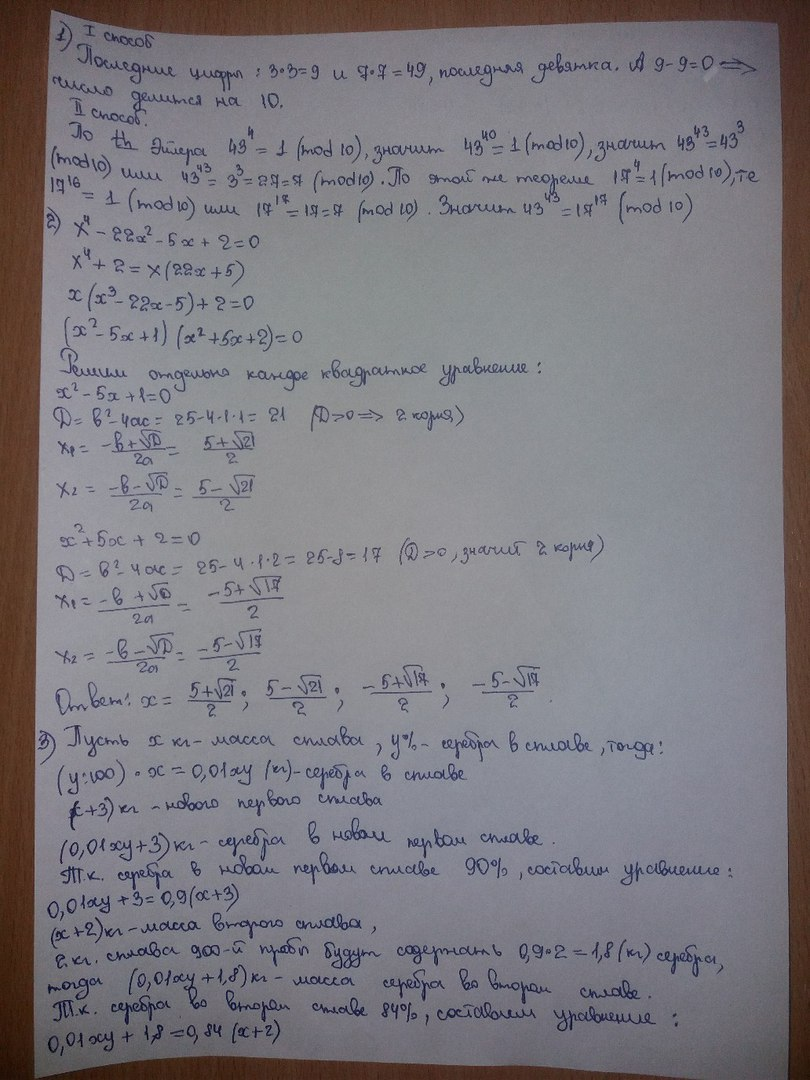 1) I способ
Последние цифры: 3·3=9 и 7·7=49, последняя девятка. А 9-9=0 ⟹
число делится на 10.
II способ.
По th Эйлера 43⁴=1 (mod 10), значит 43⁴⁰=1 (mod 10), значит 43⁴³=43³
(mod 10) или 43⁴³=3³=27=7 (mod 10). По этой же теореме 17⁴=1 (mod 10), те
17¹⁶=1 (mod 10) или 17¹⁷=17=7 (mod 10). Значит 43⁴³=17¹⁷ (mod 10)
2) x⁴-22x²-5x+2=0
x⁴+2=x(22x+5)
x(x³-22x-5)+2=0
(x²-5x+1)(x²+5x+2)=0
Решим отдельно каждое квадратное уравнение:
x²-5x+1=0
D=b²-4ac=25-4·1·1=21 (D>0 ⟹ 2 корня)
x₁=(-b+√D)/2a=(5+√21)/2
x₂=(-b-√D)/2a=(5-√21)/2
x²+5x+2=0
D=b²-4ac=25-4·1·2=25-8=17 (D>0, значит 2 корня)
x₁=(-b+√D)/2a=(-5+√17)/2
x₂=(-b-√D)/2a=(-5-√17)/2
Ответ: x=(5+√21)/2; (5-√21)/2; (-5+√17)/2; (-5-√17)/2.
3) Пусть x кг-масса сплава, y%-серебра в сплаве, тогда:
(y:100)·x=0,01xy (кг)-серебра в сплаве
(x+3) кг-нового первого сплава
(0,01xy+3) кг-серебра в новом первом сплаве.
Т.к. серебра в новом первом сплаве 90%, составим уравнение:
0,01xy+3=0,9(x+3)
(x+2) кг-масса второго сплава,
2 кг. сплава 900-й пробы будут содержать 0,9·2=1,8 (кг) серебра,
тогда (0,01xy+1,8) кг-масса серебра во втором сплаве.
Т.к. серебра во втором сплаве 84%, составляем уравнение:
0,01xy+1,8=0,84(x+2)